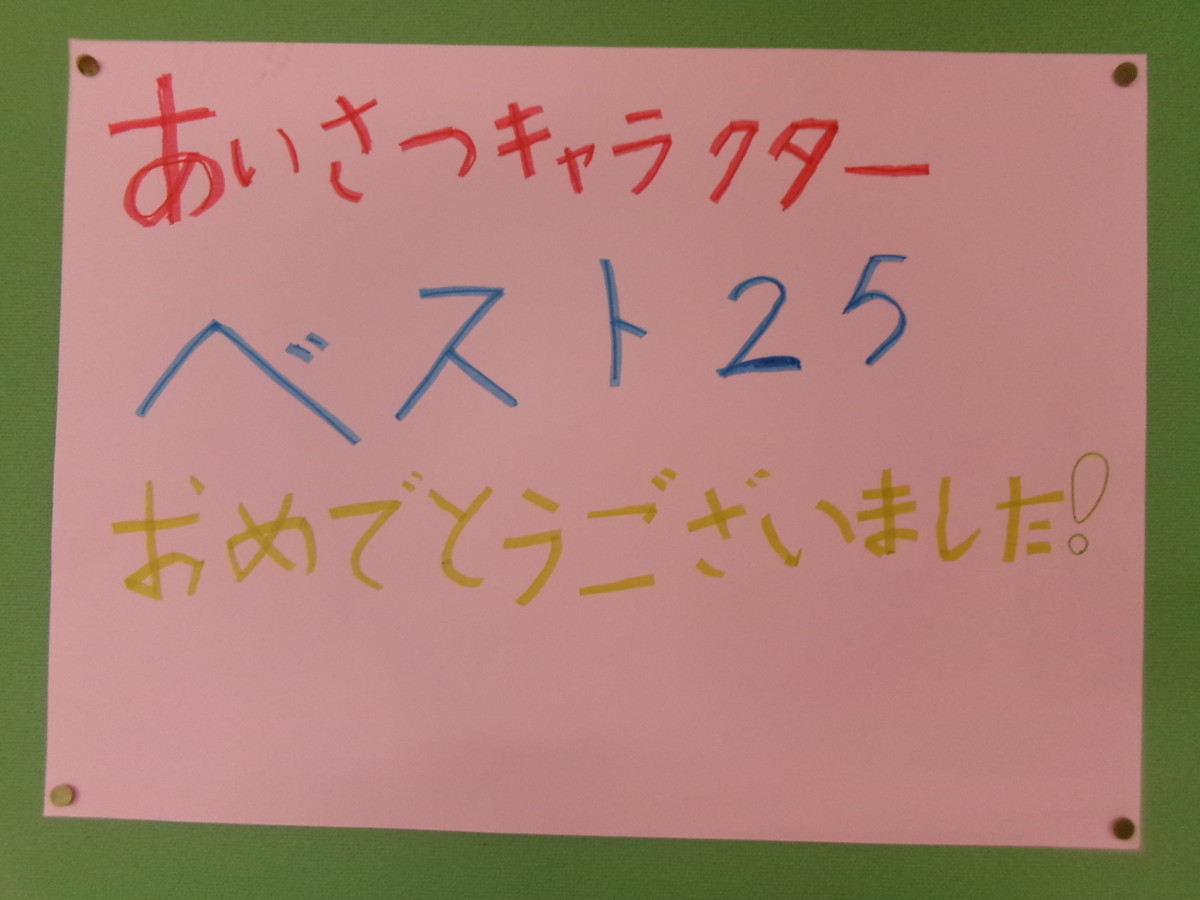 あいさつキャラクター
ベスト25
おめでとうございました!